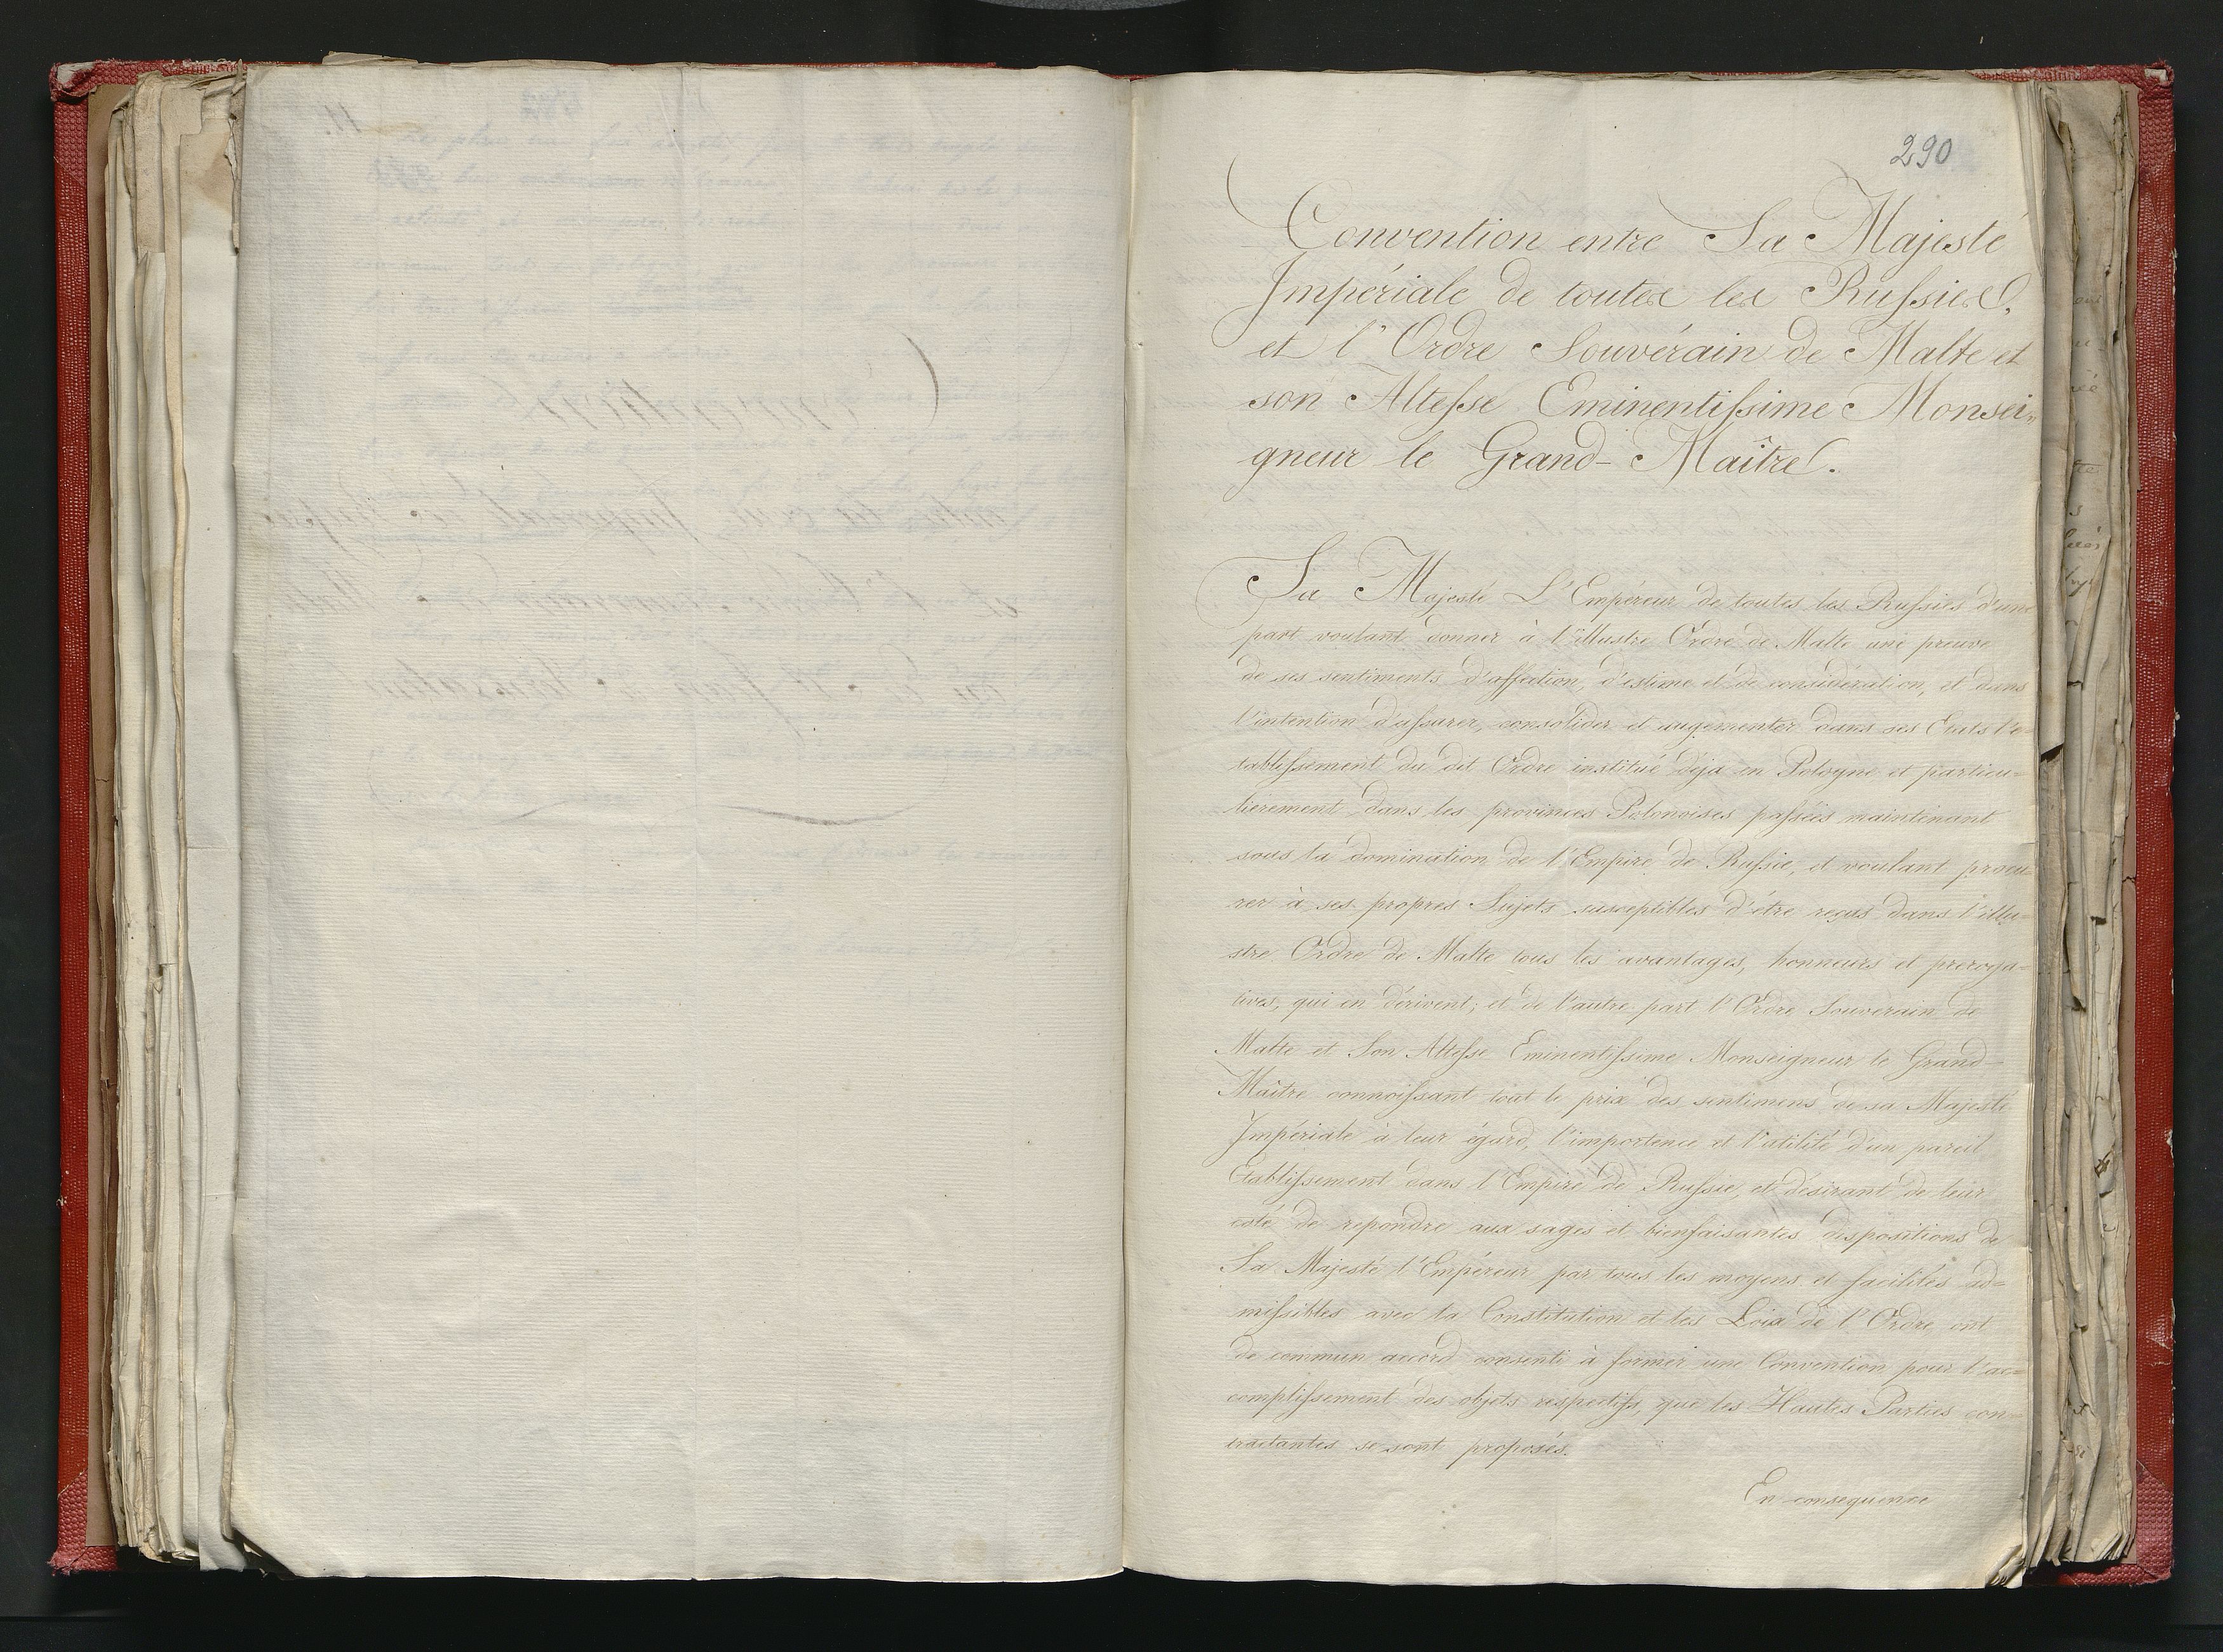 290
Convention entre Sa Majesté
Impériale de toutes les Russies,
et l'Ordre Souvérain de Malte et
son Altesse Eminentissime Monsei„
gneur le Grand-Maître.
Sa Majesté L'Empéreur de toutes les Russies d'une
part voulant donner à l'illustre Ordre de Malte une preuve
de ses sentiments d'affection, d'estime et de considération, et dans
l'intention d'assurer, consolider et augementer dans ses Etats l'e=
tablissement du dit Ordre institué déja en Pologne et particu=
lierement dans les provinces Polonoises passées maintenant
sous la domination de l'Empire de Russie, et voulant procu=
rer à ses propres Sujets susceptibles d'être reçus dans l'illu=
stre Ordre de Malte tous les avantages, honneurs et preroga=
tives, qui en dérivent; et de l'autre part l'Ordre Souverain de
Malte et Son Altesse Eminentissime Monseigneur le Grand-
Maître connoissant tout le prix des sentimens de sa Majesté
Impériale à leur égard, l'importence et l'utilité d'un pareil
Etablissement dans l'Empire de Russie, et désirant de leur
coté de repondre aux sages et bienfaisantes dispositions de
Sa Majesté l'Empéreur par tous les moyens et facilités ad=
missibles avec la Constitution et les Loix de l'Ordre ont
de commun accord consenti à former une Convention pour l'ac=
complissement des objets respectifs, que les Hautes Parties con=
tractantes se sont proposés.
En consequence